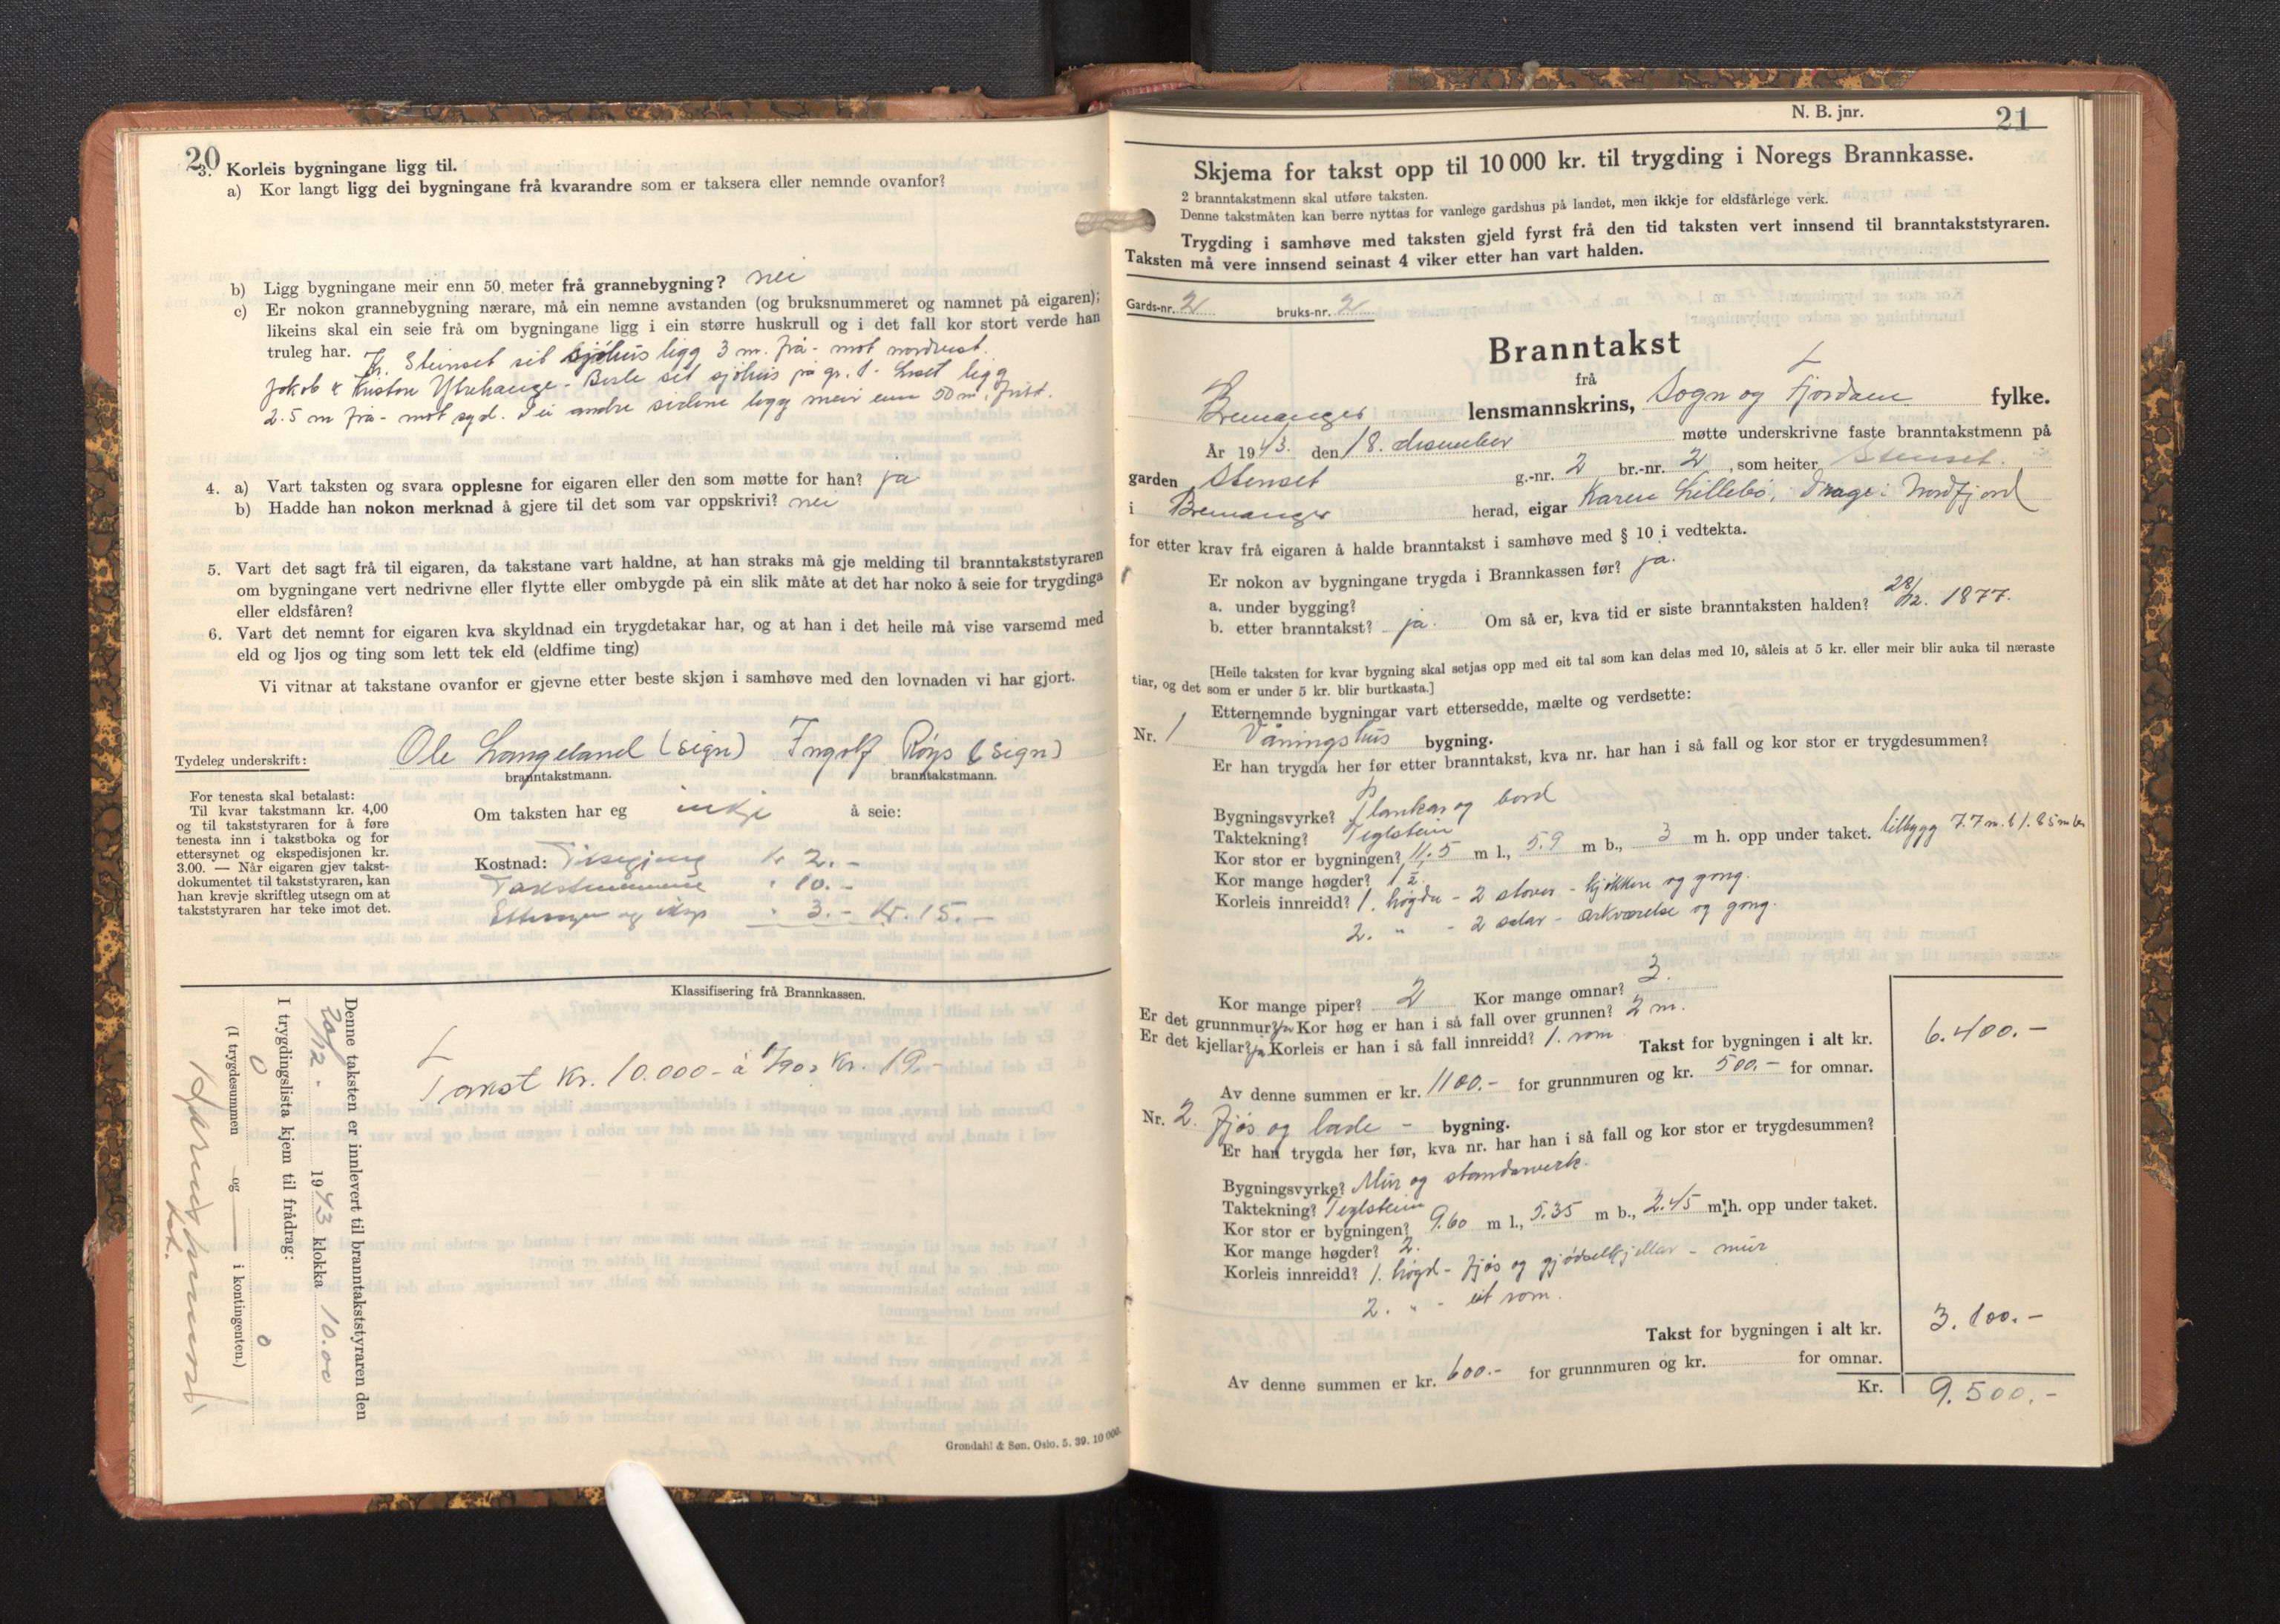 20
3. Korleis bygningane ligg til.
a) Kor langt ligg dei bygningane frå kvarandre som er taksera eller nemnde ovanfor?
b) Ligg bygningane meir enn 50 meter frå grannebygning? nei
c) Er nokon grannebygning nærare, må ein nemne avstanden (og bruksnummeret og namnet på eigaren);
likeins skal ein seie frå om bygningane ligg i ein større huskrull og i det fall kor stort verde han
truleg har. Steinset sit sjøhus ligg 3 m. frå - mot nordvest.
Jakob & Kristen Ytrehauge - Berle sit sjøhus på gr. 1 - ligg
2.5 m frå - mot syd. Dei andre sidene ligg meir enn 50 m. fritt.
4. a) Vart taksten og svara opplesne for eigaren eller den som møtte for han? ja
b) Hadde han nokon merknad å gjere til det som var oppskrivi? nei
5. Vart det sagt frå til eigaren, da takstane vart haldne, at han straks må gje melding til branntakststyraren
om bygningane vert nedrivne eller flytte eller ombygde på ein slik måte at det har noko å seie for trygdinga
eller eldsfåren?
6. Vart det nemnt for eigaren kva skyldnad ein trygdetakar har, og at han i det heile må vise varsemd med
eld og ljos og ting som lett tek eld (eldfime ting)
Vi vitnar at takstane ovanfor er gjevne etter beste skjøn i samhøve med den lovnaden vi har gjort.
Tydeleg underskrift: Ole Langeland (sign) Ingolf Røys (sign)
branntakstmann. branntakstmann.
For tenesta skal betalast:
Til kvar takstmann kr. 4,00
og til takststyraren for å føre
tenesta inn i takstboka og for
ettersynet og ekspedisjonen kr.
3.00. — Når eigaren gjev takst-
dokumentet til takststyraren, kan
han krevje skriftleg utsegn om at
takststyraren har teke imot det.
Om taksten har eg inkje å seie:
Kostnad: Tilsegjing kr 2.-
Takstmennene " 10.-
Ettersyn og eksp " 3.- Kr. 15.-
Klassifisering frå Brannkassen.
Takst kr. 10.000.- à 1.90 = kr. 19.-
Denne taksten er innlevert til branntakststyraren den
20/12. 1943 klokka 10.00
I trygdingslista kjem til frådrag:
0 0
(I trygdesummen og i kontingenten.)
Grondahl & Søn. Oslo. 5. 39. 10 000.
N. B. jnr. 21
Skjema for takst opp til 10 000 kr. til trygding i Noregs Brannkasse.
2 branntakstmenn skal utføre taksten.
Denne takstmåten kan berre nyttas for vanlege gardshus på landet, men ikkje for eldsfårlege verk.
Trygding i samhøve med taksten gjeld fyrst frå den tid taksten vert innsend til branntakststyraren.
Taksten må vere innsend seinast 4 viker etter han vart halden.
Gards-nr. 2 bruks-nr. 2
Branntakst
frå
Bremanger lensmannskrins, Sogn og Fjordane fylke.
År 1943. den 18. desember møtte underskrivne faste branntakstmenn på
garden Stenset g.-nr. 2 br.-nr. 2, som heiter Stenset.
i Bremanger herad, eigar Karen Lillebø, Drage i Nordfjord
for etter krav frå eigaren å halde branntakst i samhøve med § 10 i vedtekta.
Er nokon av bygningane trygda i Brannkassen før? ja.
a. under bygging?
b. etter branntakst? ja. Om så er, kva tid er siste branntaksten halden? 28/12. 1877.
[Heile taksten for kvar bygning skal setjas opp med eit tal som kan delas med 10, såleis at 5 kr. eller meir blir auka til næraste
tiar, og det som er under 5 kr. blir burtkasta.]
Etternemnde bygningar vart ettersedde, mælte og verdsette:
Nr. 1 Våningshus bygning.
Er han trygda her før etter branntakst, kva nr. har han i så fall og kor stor er trygdesummen?
Bygningsvyrke? Plankar og bord
Taktekning? Teglstein
Kor stor er bygningen? 11.5 m l., 5.9 m b., 3 m h. opp under taket. tilbygg 7.7 m. l 1.85 m br
Kor mange høgder? 1 1/2.
Korleis innreidd? 1. høgde - 2 stover - kjøkken og gong.
2. " - 2 salar - arkværelse og gong.
Kor mange piper? 2 Kor mange omnar? 3.
Er det grunnmur? ja Kor høg er han i så fall over grunnen? 2 m.
Er det kjellar? ja Korleis er han i så fall innreidd? 1. rom
Takst for bygningen i alt kr. 6.400.-
Av denne summen er kr. 1100.- for grunnmuren og kr. 500.- for omnar.
Nr. 2. Fjøs og løde - bygning.
Er han trygda her før, kva nr. har han i så fall og kor stor er trygdesummen?
Bygningsvyrke? Mur og standarverk.
Taktekning? Teglstein
Kor stor er bygningen? 9.60 m l., 5.35 m b., 2.45 m h. opp under taket.
Kor mange høgder? 2.
Korleis innreidd? 1. høgd - fjøs og gjødselkjellar - mur
2. " - eit rom.
Takst for bygningen i alt kr. 3.100.-
Av denne summen er kr. 600.- for grunnmuren og kr. for omnar.
Kr. 9.500.-